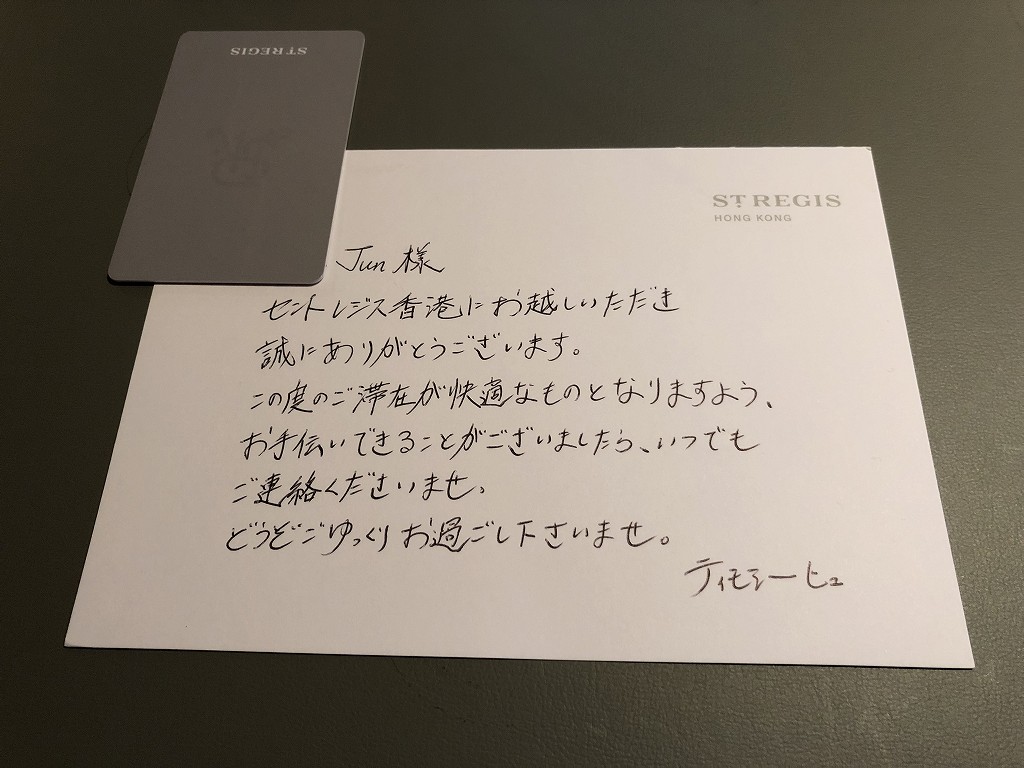 ST REGIS
ST. REGIS
HONG KONG
Jun 様
セントレジス香港にお越しいただき
誠にありがとうございます。
この度のご滞在が快適なものとなりますよう、
お手伝いできることがございましたら、いつでも
ご連絡くださいませ。
どうぞごゆっくりお過ごし下さいませ。
ティモシーヒュ